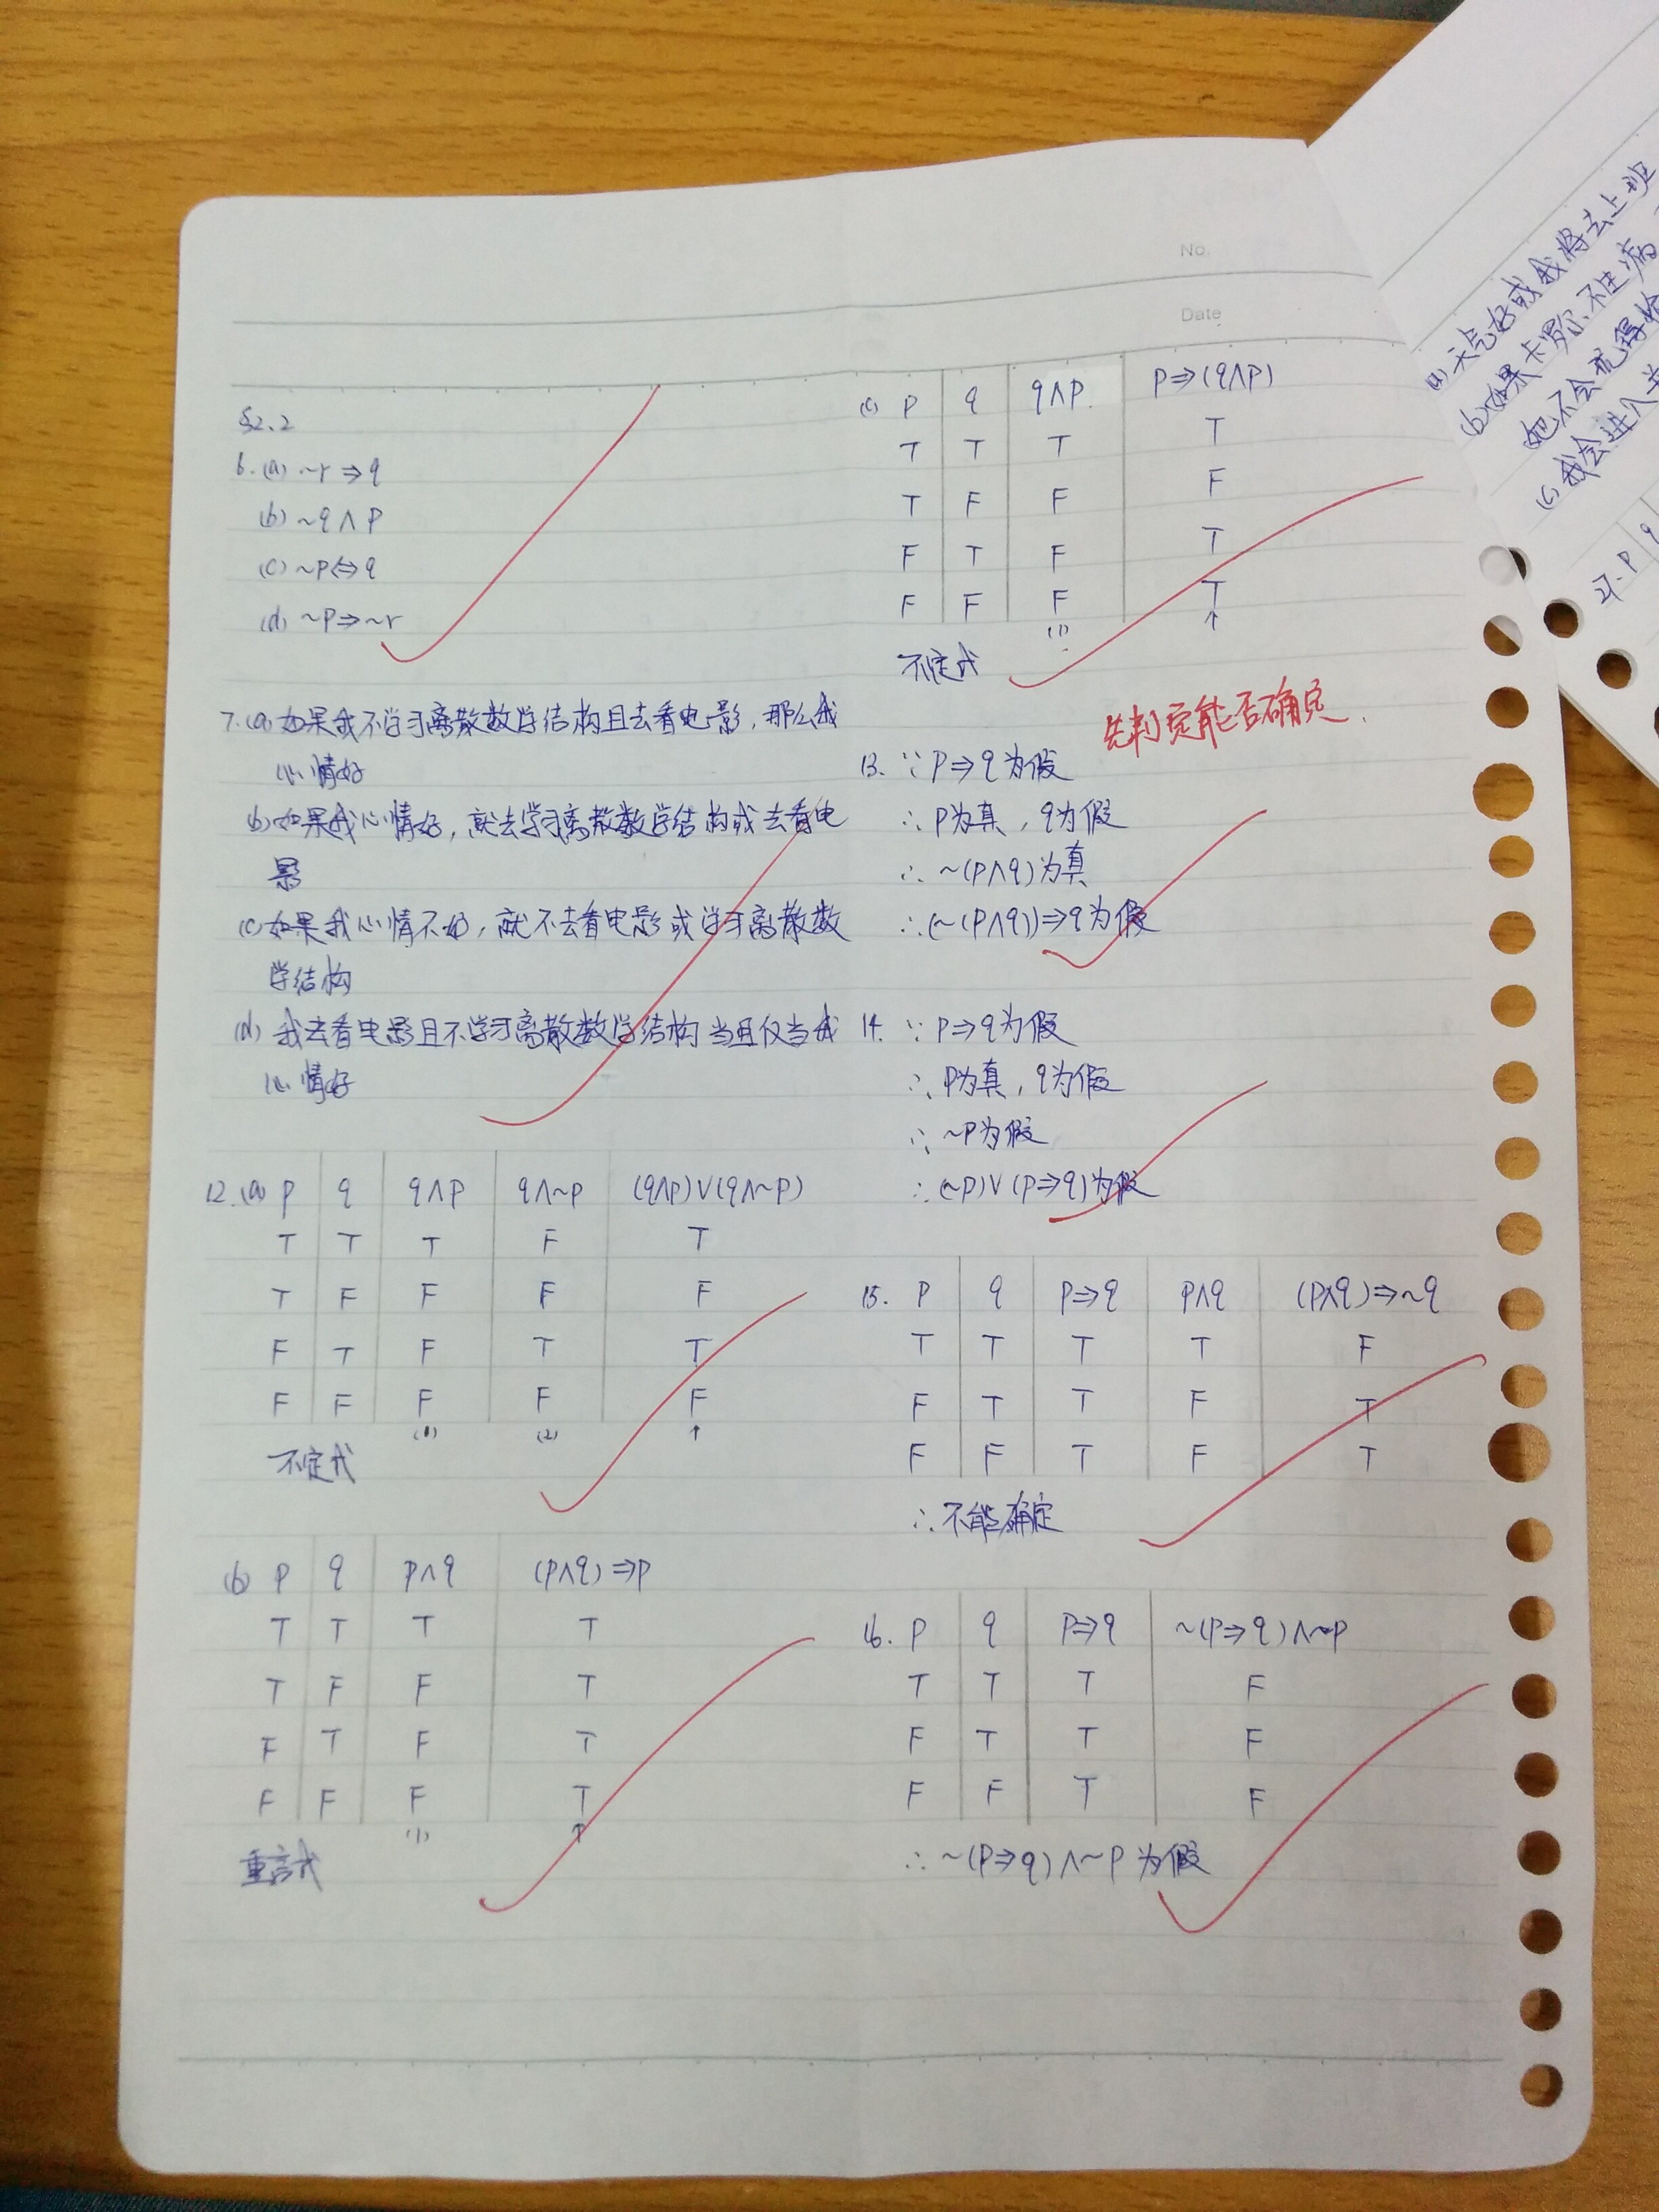 No.
Date
§2.2
6.(a) ~r⇒q
(b) ~q∧p
(c) ~p⇔q
(d) ~p⇒~r
7.(a) 如果我不学习离散数学结构且去看电影,那么我
心情好
(b) 如果我心情好,就去学习离散数学结构或去看电
影
(c) 如果我心情不好,就不去看电影或学习离散数
学结构
(d) 我去看电影且不学习离散数学结构当且仅当我
心情好
12.(a) p q q∧p q∧~p (q∧p)∨(q∧~p)
T T T F T
T F F F F
F T F T T
F F F F F
(1) (2) ↑
不定式
(b) p q p∧q (p∧q)⇒p
T T T T
T F F T
F T F T
F F F T
(1) ↑
重言式
(c) p q q∧p. p⇒(q∧p)
T T T T
T F F F
F T F T
F F F T
(1) ↑
不定式
先判定能否确定.
13. ∵ p⇒q为假
∴ p为真,q为假
∴ ~(p∧q)为真
∴(~(p∧q))⇒q为假
14. ∵ p⇒q为假
∴ p为真,q为假
∴ ~p为假
∴(~p)∨(p⇒q)为假
15. p q p⇒q p∧q (p∧q)⇒~q
T T T T F
F T T F T
F F T F T
∴不能确定
16. p q p⇒q ~(p⇒q)∧~p
T T T F
F T T F
F F T F
∴ ~(p⇒q)∧~p为假
(a) 天气好或我将去上班
(b) 如果卡罗尔不生病
她不会觉得
(c) 我会进入
27. p q